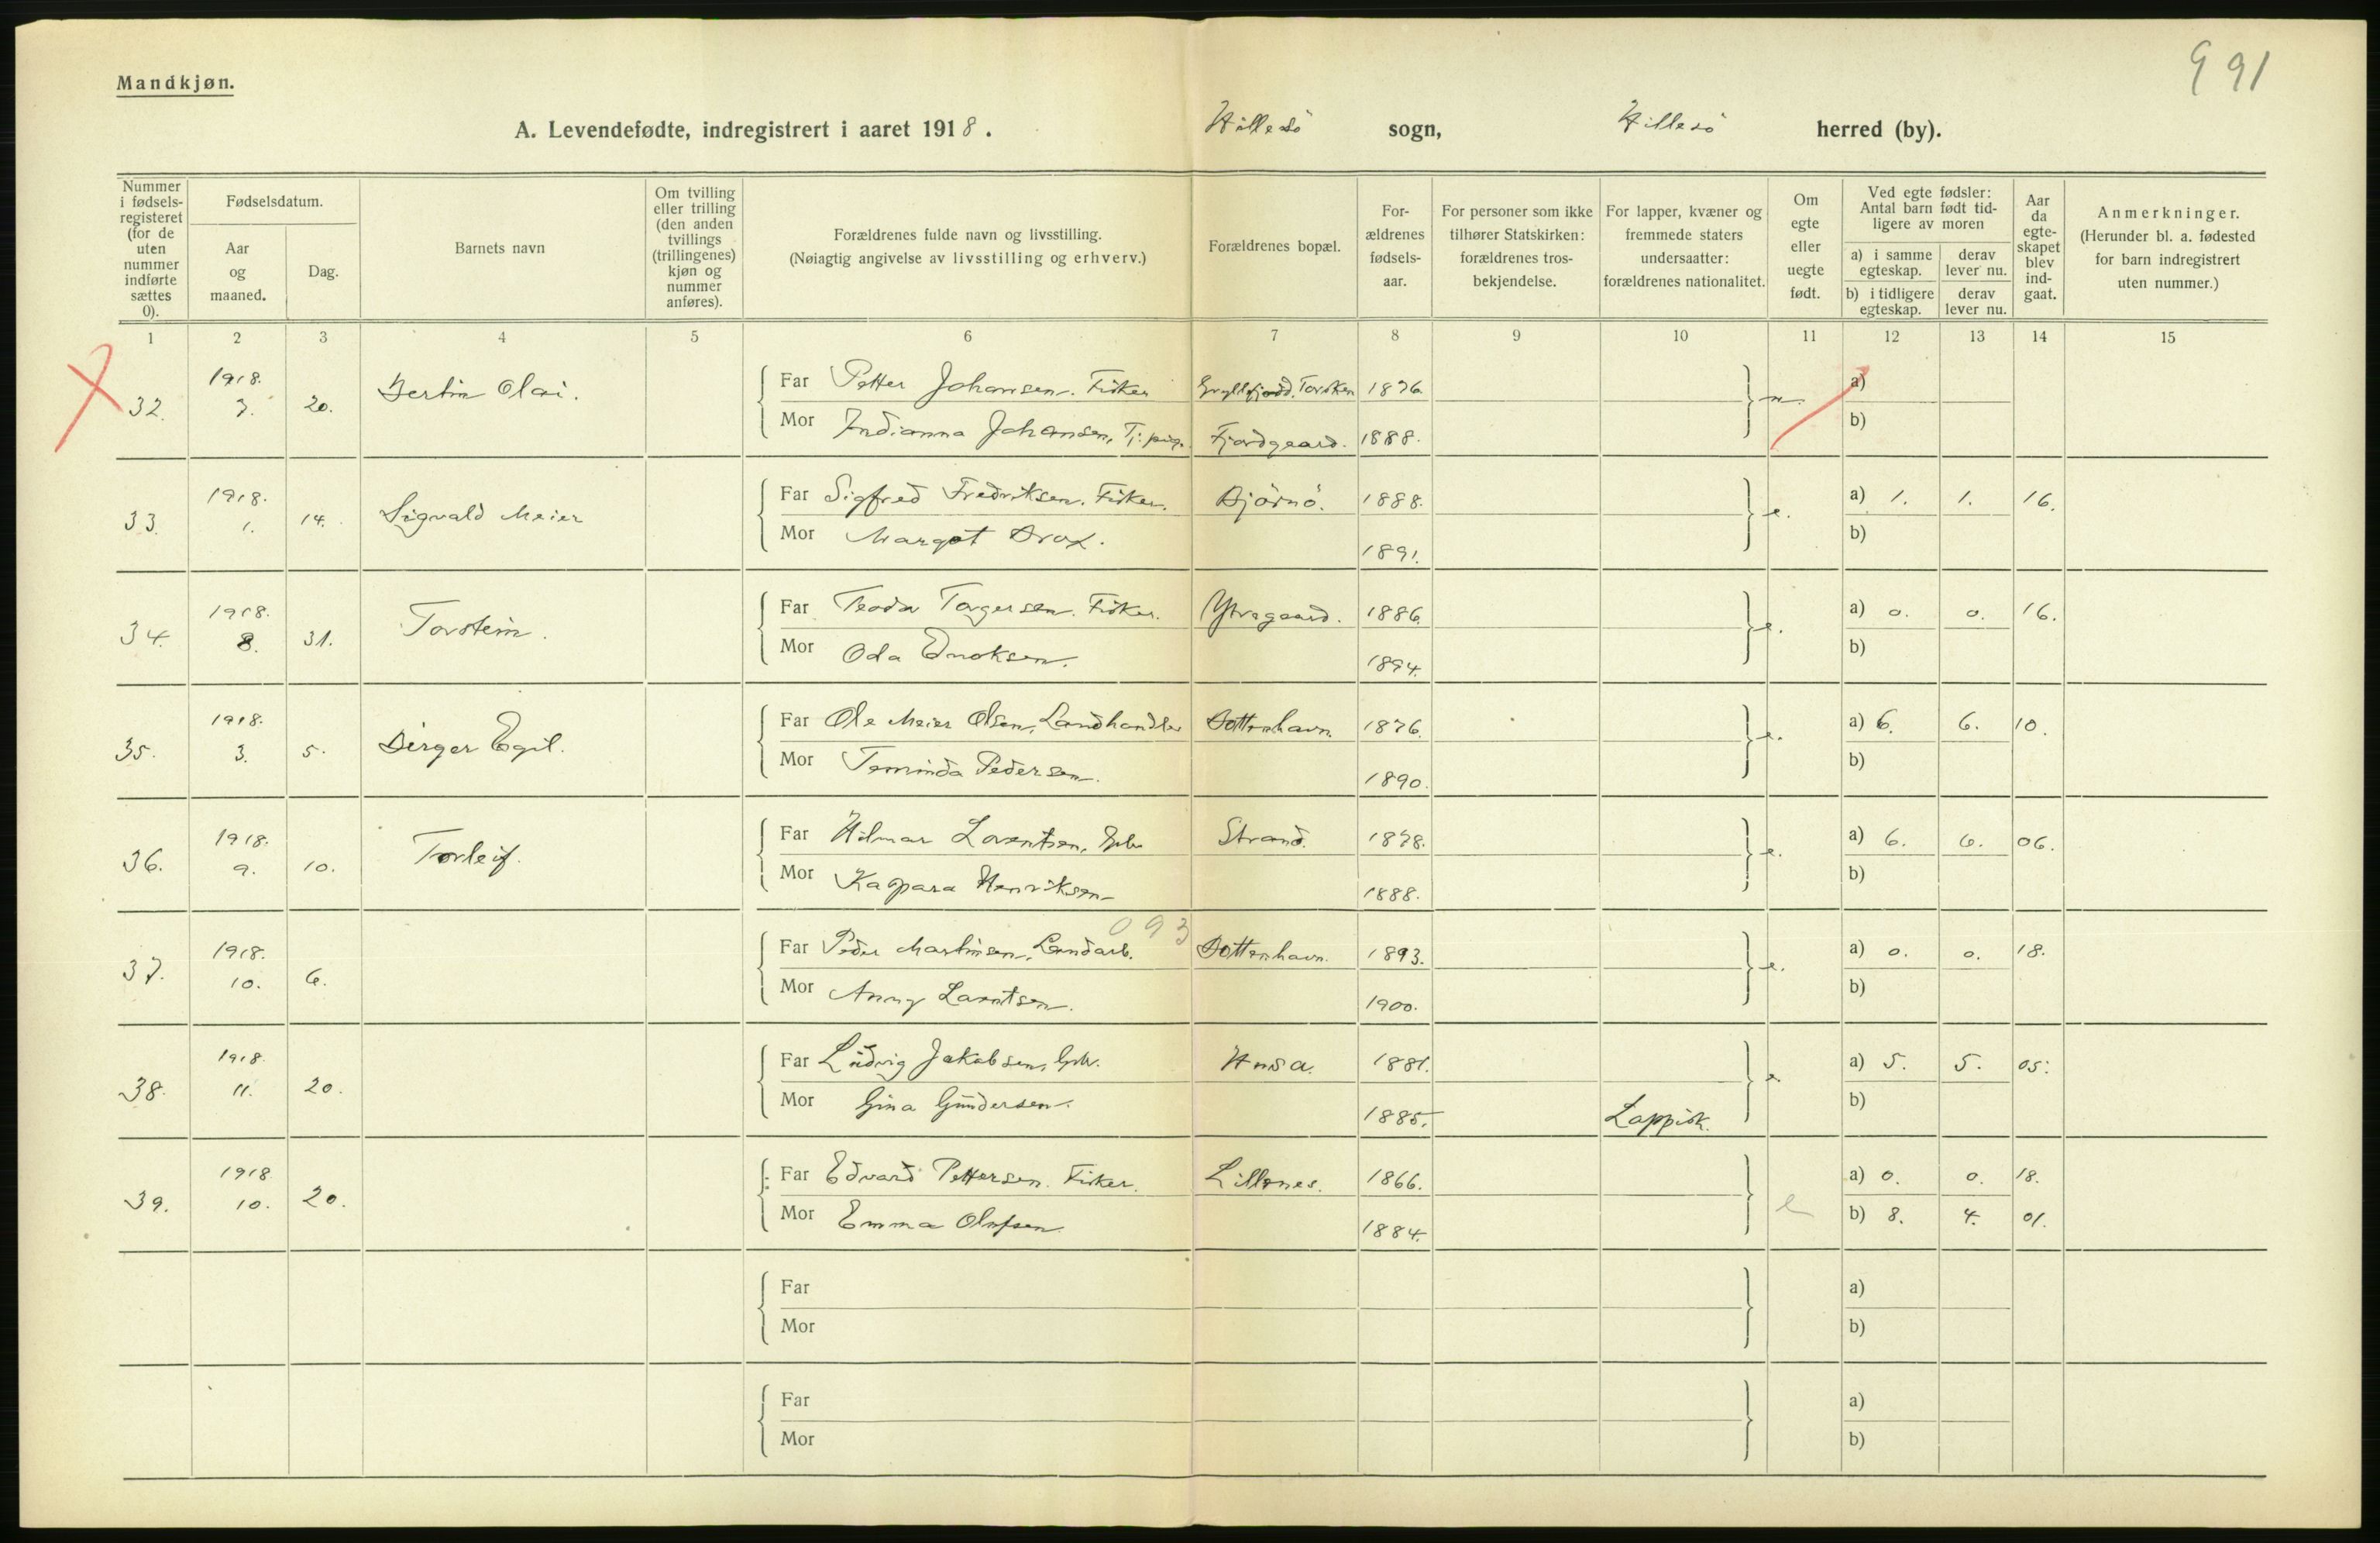 991
Mandkjøn.
A. Levendefødte, indregistrert i aaret 1918. Hillesö sogn, Hillesö herred (by).
Nummer i fødsels-registeret (for de uten nummer indførte sættes 0).
Fødselsdatum.
Aar og maaned.
Dag.
Barnets navn
Om tvilling eller trilling (den anden tvillings (trillingenes) kjøn og nummer anføres).
Forældrenes fulde navn og livsstilling.
(Nøiagtig angivelse av livsstilling og erhverv.)
Forældrenes bopæl.
For-ældrenes fødsels-aar.
For personer som ikke tilhører Statskirken: forældrenes tros-bekjendelse.
For lapper, kvæner og fremmede staters undersaatter: forældrenes nationalitet.
Om egte eller uegte født.
Ved egte fødsler: Antal barn født tid-ligere av moren
a) i samme egteskap. derav lever nu.
b) i tidligere egteskap. derav lever nu.
Aar da egte-skapet blev ind-gaat.
Anmerkninger.
(Herunder bl. a. fødested for barn indregistrert uten nummer.)
1 2 3 4 5 6 7 8 9 10 11 12 13 14 15
32. 1918. 7. 20. Bertin Olai. Far Petter Johansen. Fisker Gryllefjord. Torsken 1876. u. a)
Mor Indianna Johansen, Tj. pige. Fjordgaard. 1888. b)
33. 1918. 1. 14. Sigvald Meier Far Sigfred Fredriksen. Fisker. Björnö. 1888. e. a) 1. 1. 16.
Mor Margot Brox. 1891. b)
34. 1918. 8. 31. Torstein. Far Teodor Torgersen. Fisker. Ytregaard. 1886. e. a) 0. 0. 16.
Mor Oda Enoksen. 1894. b)
35. 1918. 3. 5. Birger Egil. Far Ole Meier Olsen, Landhandler Bottenhavn. 1876. e. a) 6. 6. 10.
Mor Teminda Pedersen. 1890. b)
36. 1918. 9. 10. Torleif. Far Hilmar Lorentsen, Gbr Strand. 1878. e. a) 6. 6. 06.
Mor Kaspara Henriksen 1888. b)
093
37. 1918. 10. 6. Far Peder Martinsen, Landarb. Bottenhavn. 1893. e. a) 0. 0. 18.
Mor Anny Larntsen. 1900. b)
38. 1918. 11. 20. Far Ludvig Jakobsen, Gbr. 1881. e a) 5. 5. 05.
Mor Gina Gundersen. 1885. Lappisk. b)
39. 1918 10. 20. Far Edvard Pettersen. Fisker. Lillenes. 1866. e a) 0. 0. 18.
Mor Emma Olufsen 1884. b) 8. 4. 01.
Far a)
Mor b)
Far a)
Mor b)